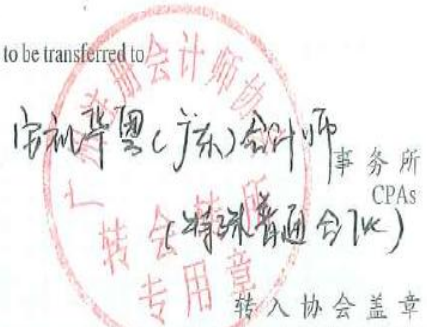 to be transferred to
华粤(广东)会计师
事务所
CPAs
(特殊普通合伙)
转入协会盖章
广 注册会计师协
转会转所
专用章